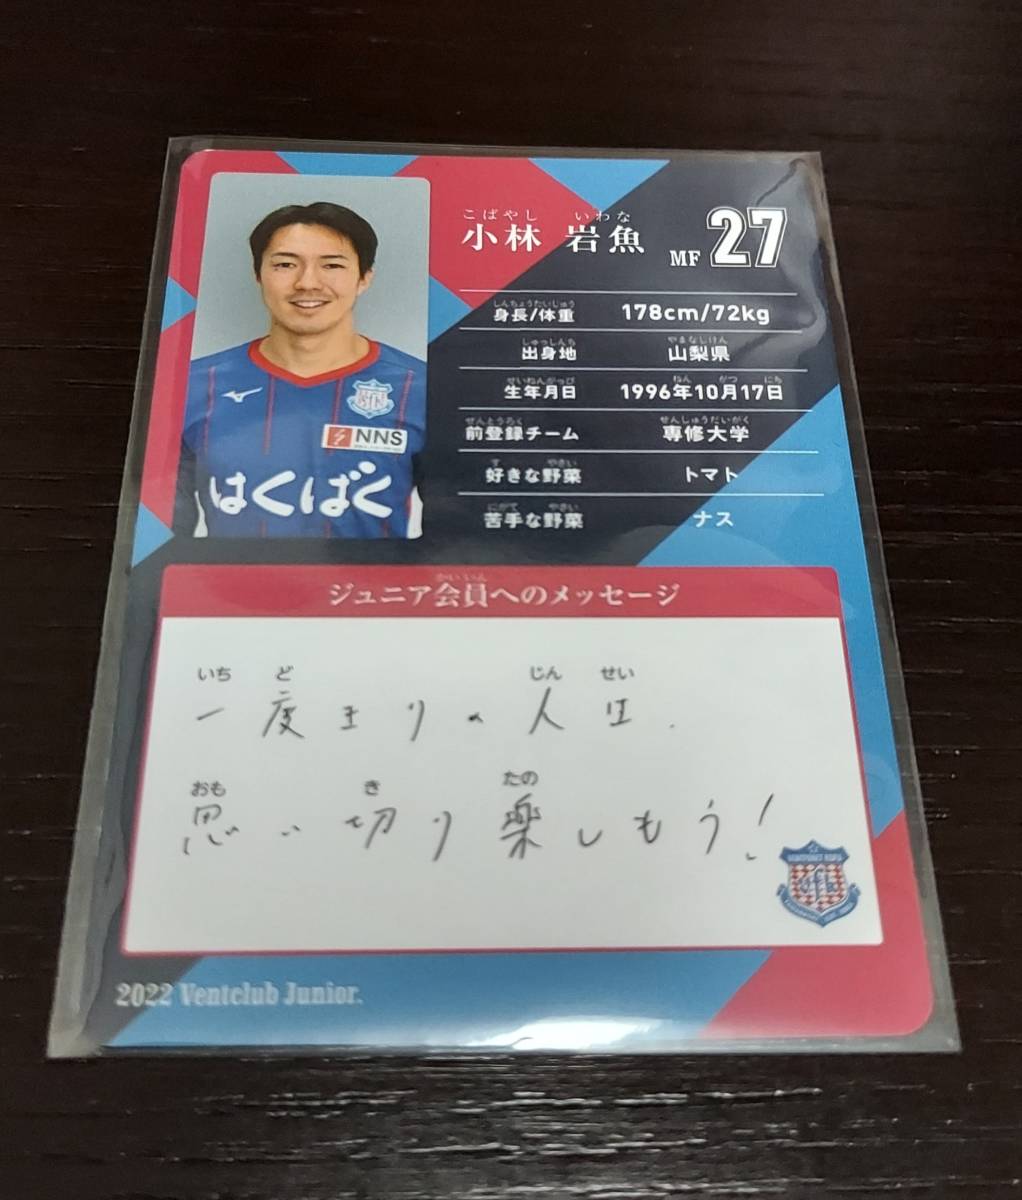 こばやし いわな
小林 岩魚 MF 27
しんちょう たいじゅう
身長/体重 178cm/72kg
しゅっしんち やまなしけん
出身地 山梨県
せいねんがっぴ ねん がつ にち
生年月日 1996年10月17日
ぜんとうろく せんしゅうだいがく
前登録チーム 専修大学
す やさい
好きな野菜 トマト
にがて やさい
苦手な野菜 ナス
NNS
はくばく
かいいん
ジュニア会員へのメッセージ
いち ど じん せい
一度きりの人生.
おも き たの
思い切り楽しもう!
2022 Ventclub Junior.